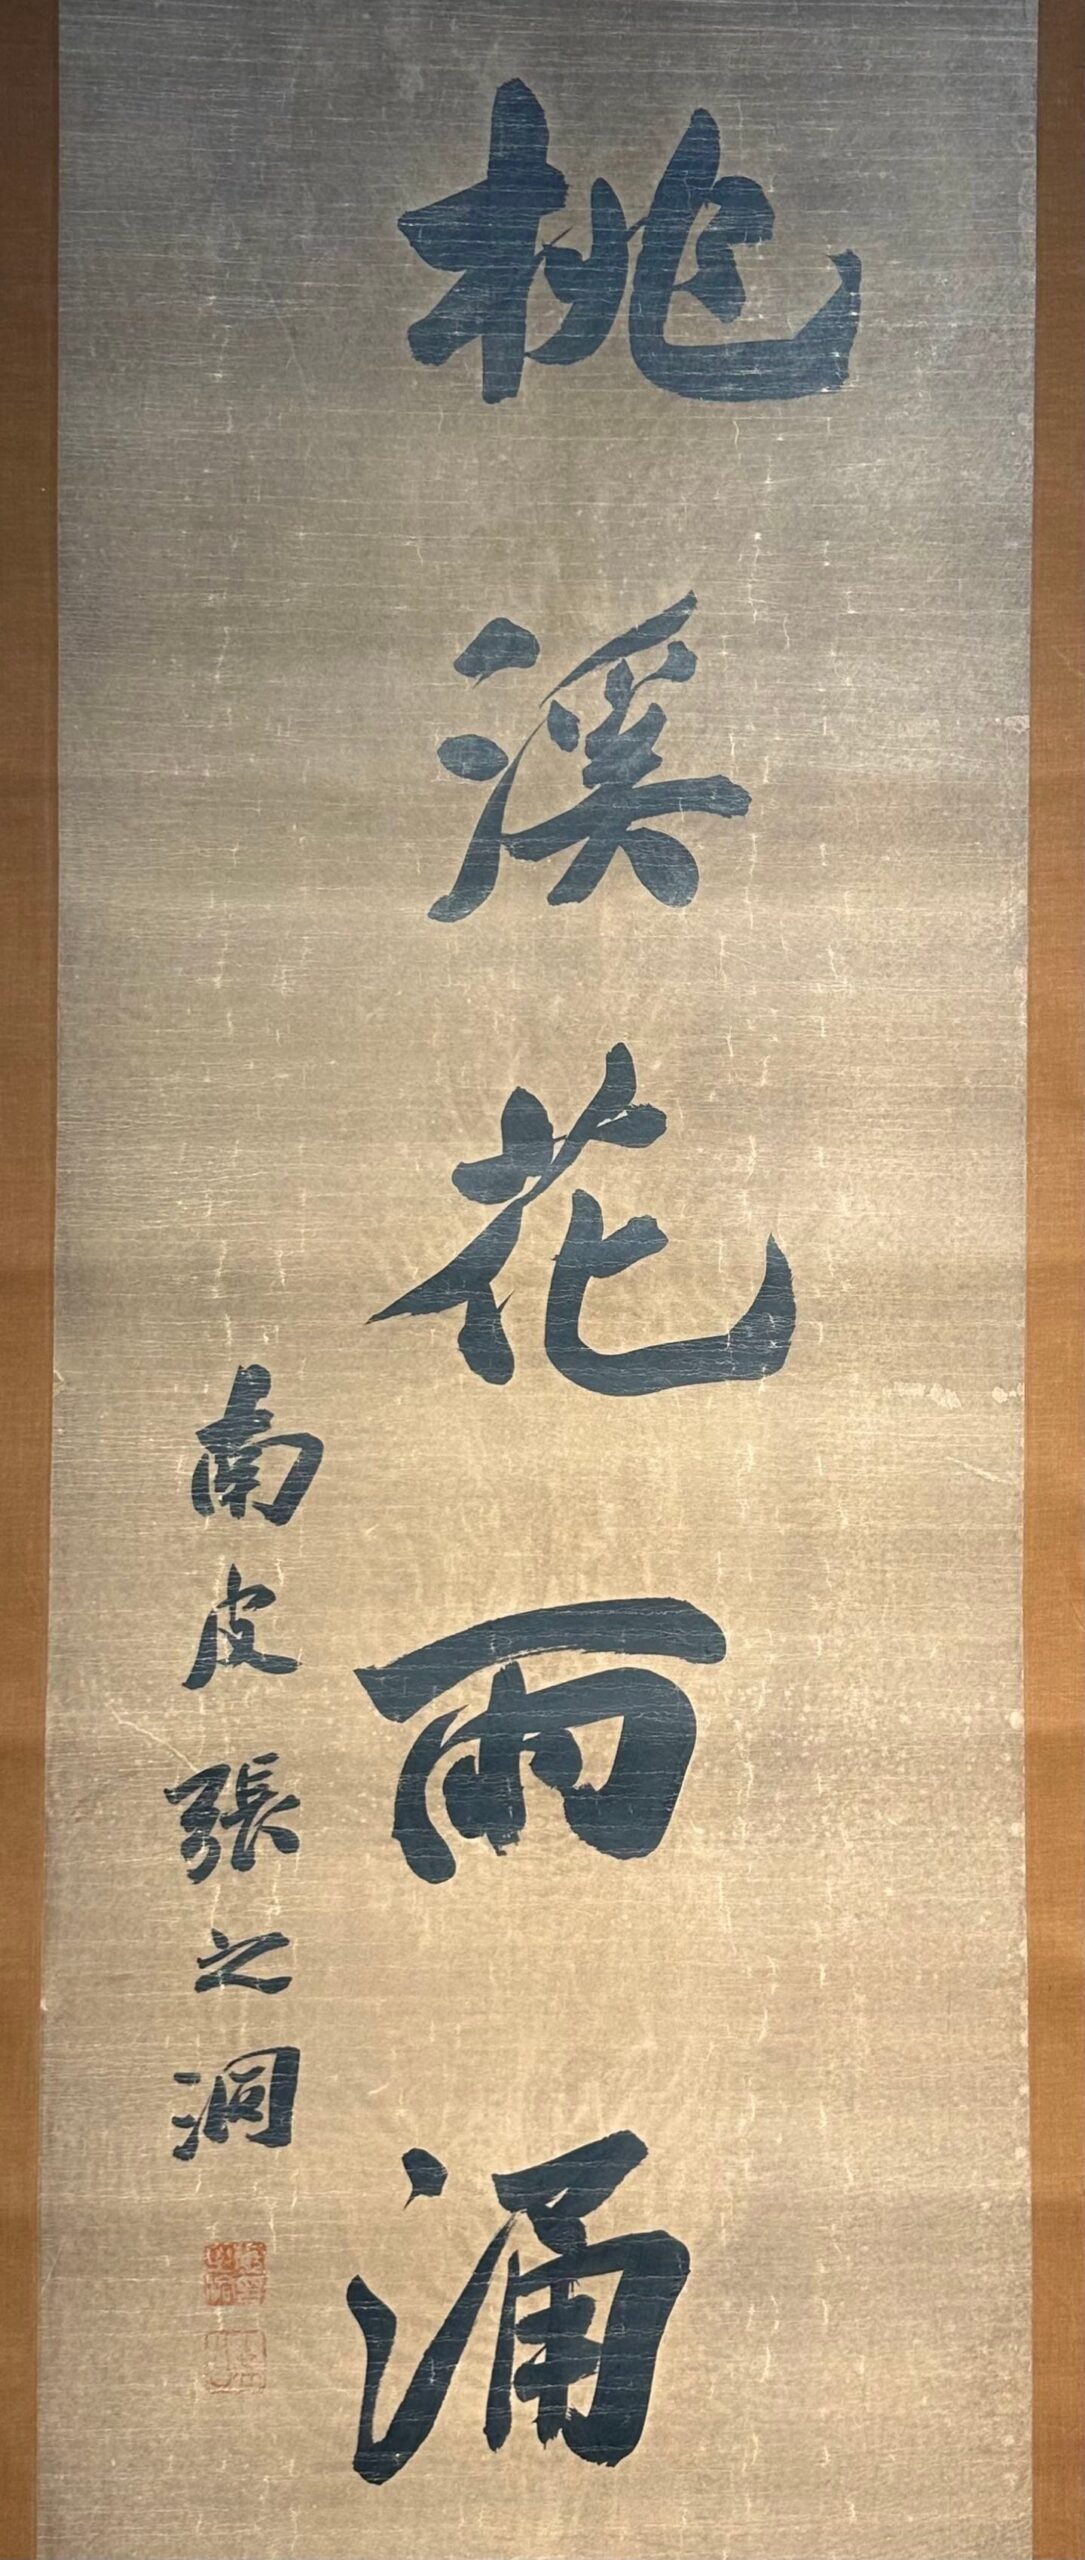 桃溪花雨涌
南皮張之洞